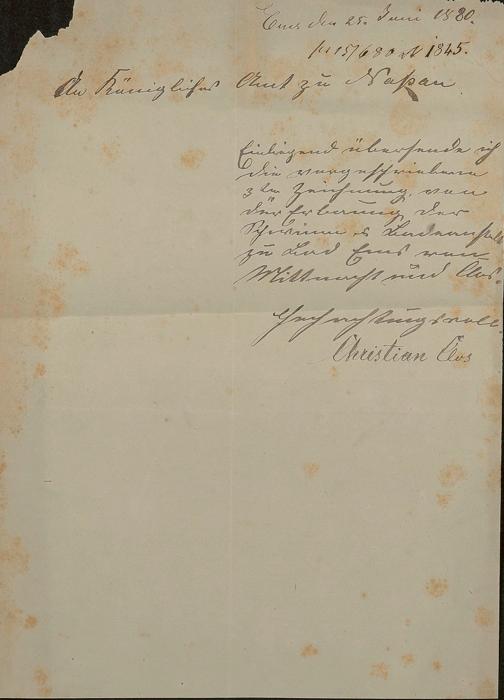 Ems den 25. Juni 1880.
pr 15/6 80 N 1845.
An Königliches Amt zu Naßau.
Einliegend übersende ich
die vorgeschriebene
3te Zeichnung, von
der Erbauung der
Schwimm & Badeanstalt
zu Bad Ems von
Mittnacht und Clos.
Hochachtungsvoll
Christian Clos